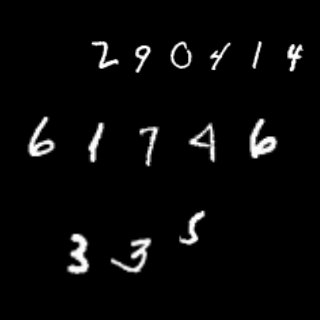 290414
61746
335